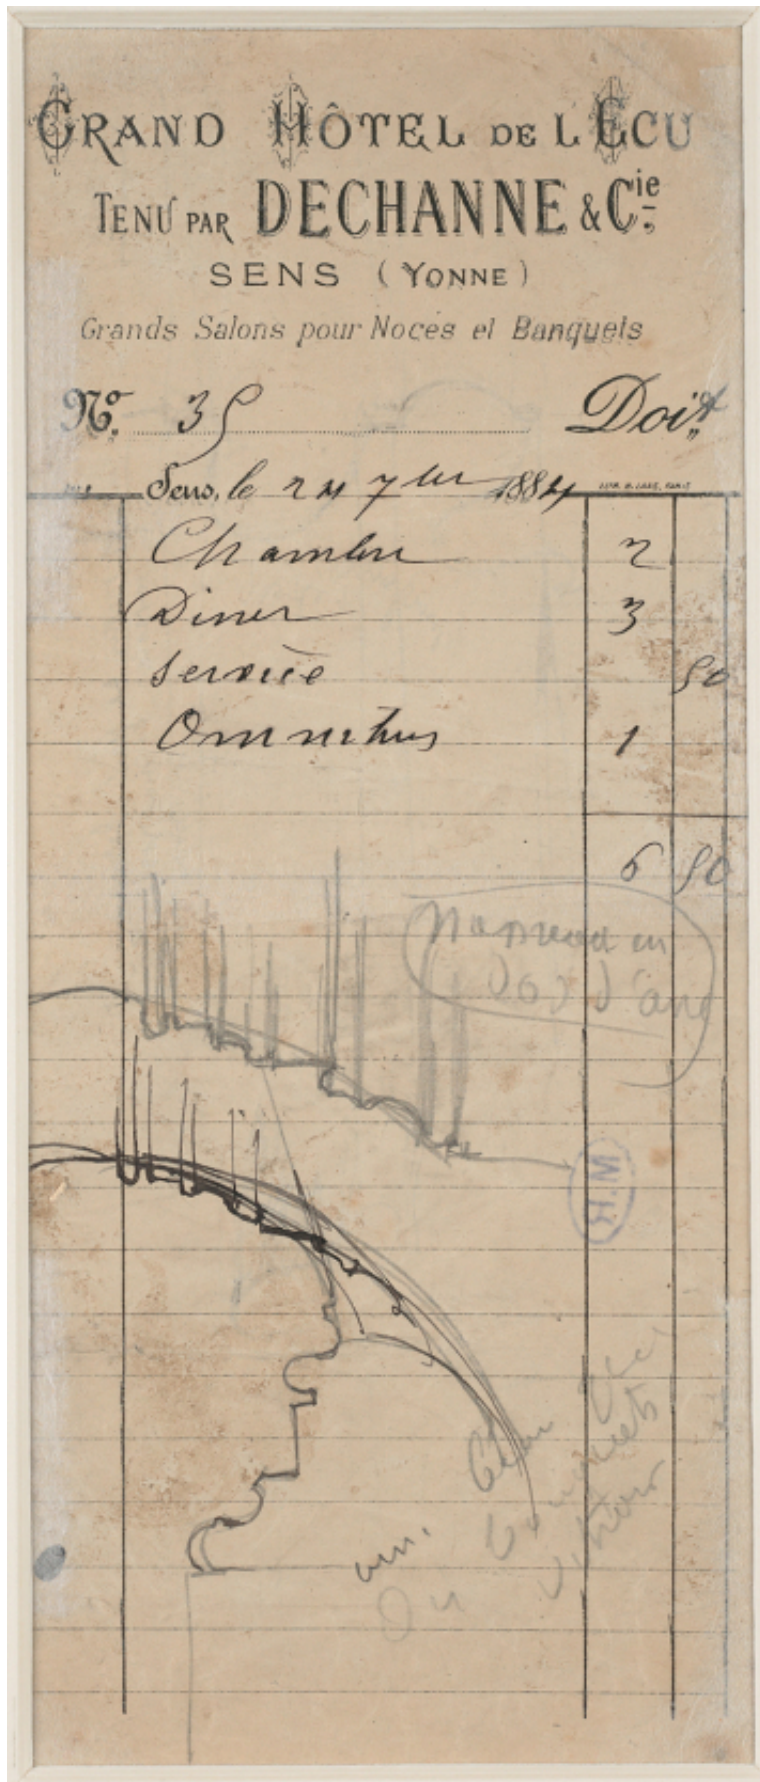 GRAND HÔTEL DE L'ECU
TENU PAR DECHANNE & Cie.
SENS (YONNE)
Grands Salons pour Noces et Banquets
No. 35 Doit
Sens, le 24 7bre 1884
Chambre 2
Diner 3
Service 50
Omnibus 1
6 50
en
Dos d'ane
M.R.
Du